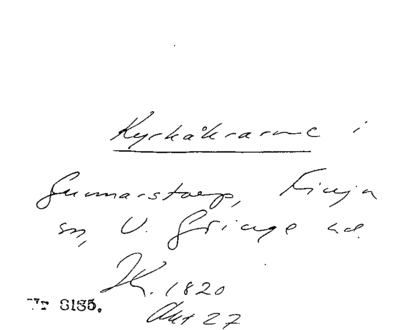 Kyrkåkrarne i
Gunnarstorp, Finja
sn, V. Göinge hd.
1820
Akt 27
Nr 8185.